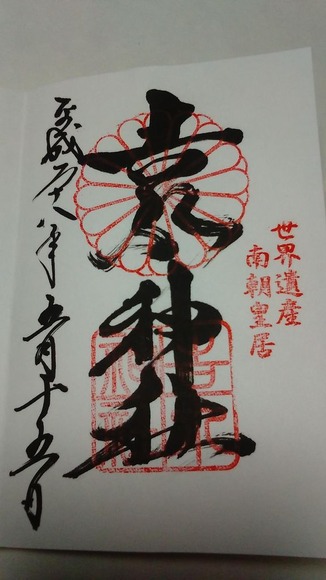 世界遺産
南朝皇居
吉水神社
平成二十八年五月十五日